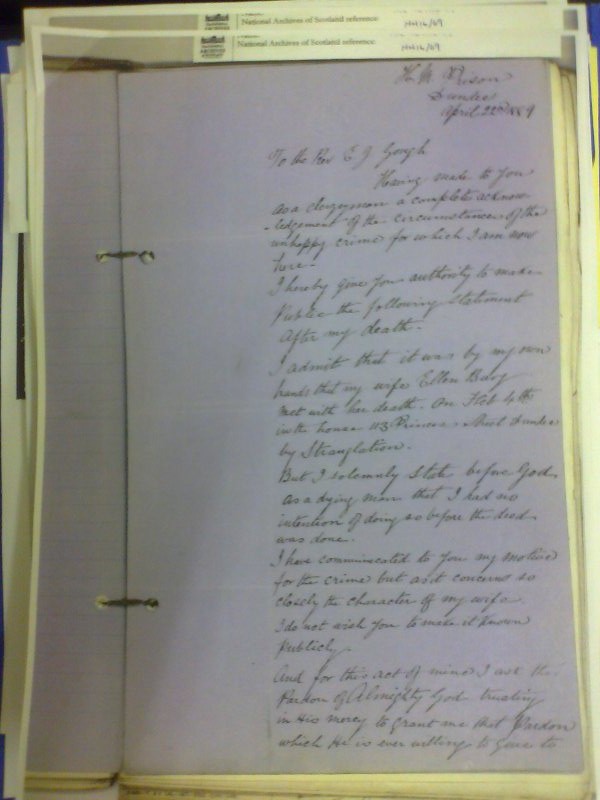 National Archives of Scotland reference:
HH16/69
National Archives of Scotland reference:
HH16/69
H. M. Prison
Dundee
April 22nd 1889
To the Rev E J Gough
Having made to you
as a clergyman a complete acknow
-ledgement of the circumstances of the
unhappy crime for which I am now
here.
I hereby give you authority to make
Public the following Statement
After my death.
I admit that it was by my own
hands that my wife Ellen Bury
met with her death. On Feb 4th
in the house 113 Princes Street Dundee
by Stranglation.
But I solemnly state before God
as a dying man that I had no
intention of doing so before the deed
was done.
I have communicated to you my motive
for the crime but as it concerns so
closely the character of my wife
I do not wish you to make it known
Publicly.
And for this act of mine I ask the
Pardon of Almighty God trusting
in His mercy to grant me that Pardon
which He is ever willing to give to